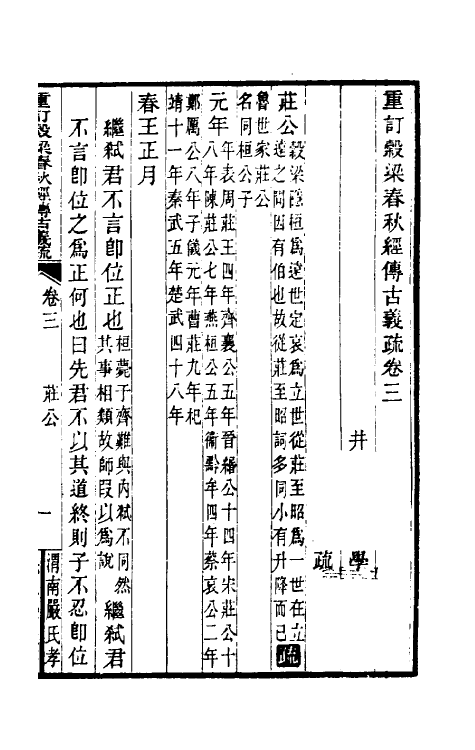 重訂穀梁春秋經傳古義疏卷三
井
學
疏
莊公 穀梁隱桓爲遠世定哀爲立世從莊至昭爲一世在立
遠之間因有伯也故從莊至昭詞多同小有升降而已 疏
魯世家莊公
名同桓公子
元年 年表周莊王四年齊襄公五年晉緡公十四年宋莊公十
八年陳莊公七年燕桓公五年衞黔牟四年蔡哀公二年
鄭厲公八年子儀元年曹莊九年杞
靖十一年秦武五年楚武四十八年
春王正月
繼弒君不言卽位正也 桓薨于齊雖與內弒不同然
其事相類故師叚以爲說 繼弒君
不言卽位之爲正何也曰先君不以其道終則子不忍卽位
重訂穀梁春秋經傳古義疏 卷三 莊公 一 渭南嚴氏孝